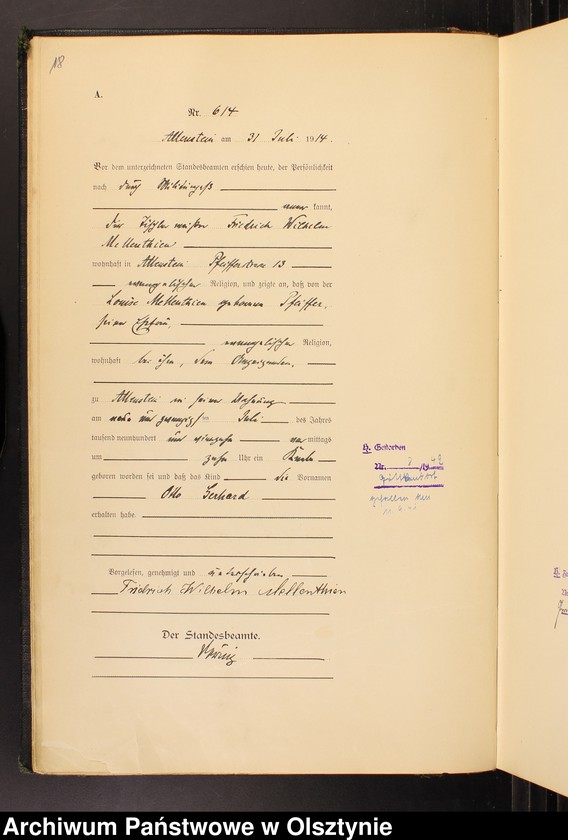 18
A.
Nr. 614
Allenstein am 31 Juli 1914.
Vor dem unterzeichneten Standesbeamten erschien heute, der Persönlichkeit
nach durch Militärpaß
kannt,
der Friedrich Wilhelm
Mellenthien
wohnhaft in Allenstein 13
evangelischer Religion, und zeigte an, daß von der
Louise Mellenthien geborenen Pfeiffer,
seiner Ehefrau,
evangelischer Religion,
wohnhaft bei ihm, dem Anzeigenden,
zu Allenstein in seiner Wohnung
am und zwanzigsten Juli des Jahres
tausend neunhundert und vierzehn mittags
um zehn Uhr ein Knabe
geboren worden sei und daß das Kind die Vornamen
Otto Gerhard
erhalten habe.
Vorgelesen, genehmigt und unterschrieben
Friedrich Wilhelm Mellenthien
Der Standesbeamte.
H. Gestorben
Nr.
gefallen am
Archiwum Państwowe w Olsztynie